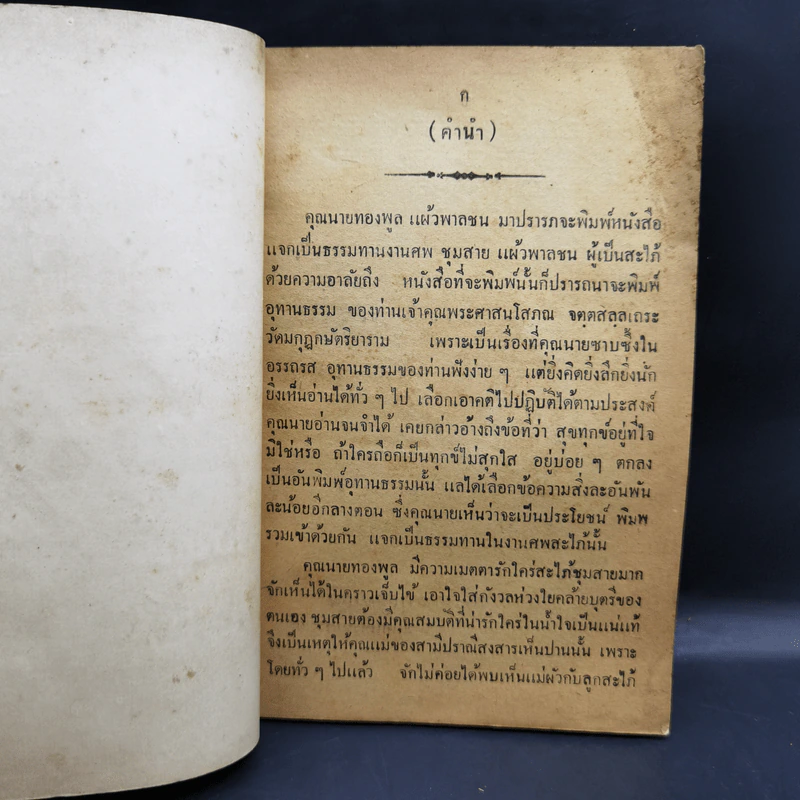 ก
(คำนำ)
คุณนายทองพูล แผ้วพาลชน มาปรารภจะพิมพ์หนังสือ
แจกเป็นธรรมทานงานศพ ชุมสาย แผ้วพาลชน ผู้เป็นสะใภ้
ด้วยความอาลัยถึง หนังสือที่จะพิมพ์นั้นก็ปรารถนาจะพิมพ์
อุทานธรรม ของท่านเจ้าคุณพระศาสนโสภณ จตฺตสลฺลเถระ
วัดมกุฎกษัตริยาราม เพราะเป็นเรื่องที่คุณนายซาบซึ้งใน
อรรถรส อุทานธรรมของท่านฟังง่าย ๆ แต่ยิ่งคิดยิ่งลึกยิ่งนัก
ยิ่งเห็นอ่านได้ทั่ว ๆ ไป เลือกเอาคติไปปฏิบัติได้ตามประสงค์
คุณนายอ่านจนจำได้ เคยกล่าวอ้างถึงข้อที่ว่า สุขทุกข์อยู่ที่ใจ
มิใช่หรือ ถ้าใครถือก็เป็นทุกข์ไม่สุกใส อยู่บ่อย ๆ ตกลง
เป็นอันพิมพ์อุทานธรรมนั้น แลได้เลือกข้อความสิ่งละอันพัน
ละน้อยอีกลางตอน ซึ่งคุณนายเห็นว่าจะเป็นประโยชน์ พิมพ์
รวมเข้าด้วยกัน แจกเป็นธรรมทานในงานศพสะใภ้นั้น
คุณนายทองพูล มีความเมตตารักใคร่สะใภ้ชุมสายมาก
จักเห็นได้ในคราวเจ็บไข้ เอาใจใส่กังวลห่วงใยคล้ายบุตรีของ
ตนเอง ชุมสายต้องมีคุณสมบัติที่น่ารักใคร่ในน้ำใจเป็นแน่แท้
จึงเป็นเหตุให้คุณแม่ของสามีปราณีสงสารเห็นปานนั้น เพราะ
โดยทั่ว ๆ ไปแล้ว จักไม่ค่อยได้พบเห็นแม่ผัวกับลูกสะใภ้